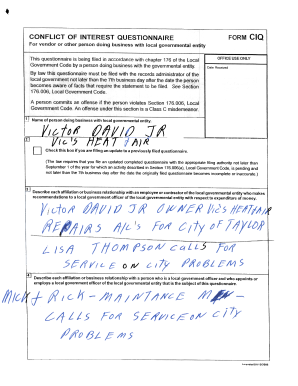 CONFLICT OF INTEREST QUESTIONNAIRE
FORM CIQ
For vendor or other person doing business with local governmental entity
This questionnaire is being filed in accordance with chapter 176 of the Local
Government Code by a person doing business with the governmental entity.
OFFICE USE ONLY
Date Received
By law this questionnaire must be filed with the records administrator of the
local government not later than the 7th business day after the date the person
becomes aware of facts that require the statement to be filed. See Section
176.006, Local Government Code.
A person commits an offense if the person violates Section 176.006, Local
Government Code. An offense under this section is a Class C misdemeanor.
1 Name of person doing business with local governmental entity.
Victor DAVID JR
Vic's HEAT & AIR
2
Check this box if you are filing an update to a previously filed questionnaire.
(The law requires that you file an updated completed questionnaire with the appropriate filing authority not later than
September 1 of the year for which an activity described in Section 176.006(a), Local Government Code, is pending and
not later than the 7th business day after the date the originally filed questionnaire becomes incomplete or inaccurate.)
3 Describe each affiliation or business relationship with an employee or contractor of the local governmental entity who makes
recommendations to a local government officer of the local governmental entity with respect to expenditure of money.
Victor DAVID JR OWNER Vic's HEAT & AIR
REPAIRS A/C's FOR CITY OF TAYLOR
LISA THOMPSON CALLS FOR
SERVICE ON CITY PROBLEMS
4 Describe each affiliation or business relationship with a person who is a local government officer and who appoints or
employs a local government officer of the local governmental entity that is the subject of this questionnaire.
MICK & RICK - MAINTANCE MEN -
CALLS FOR SERVICE ON CITY
PROBLEMS